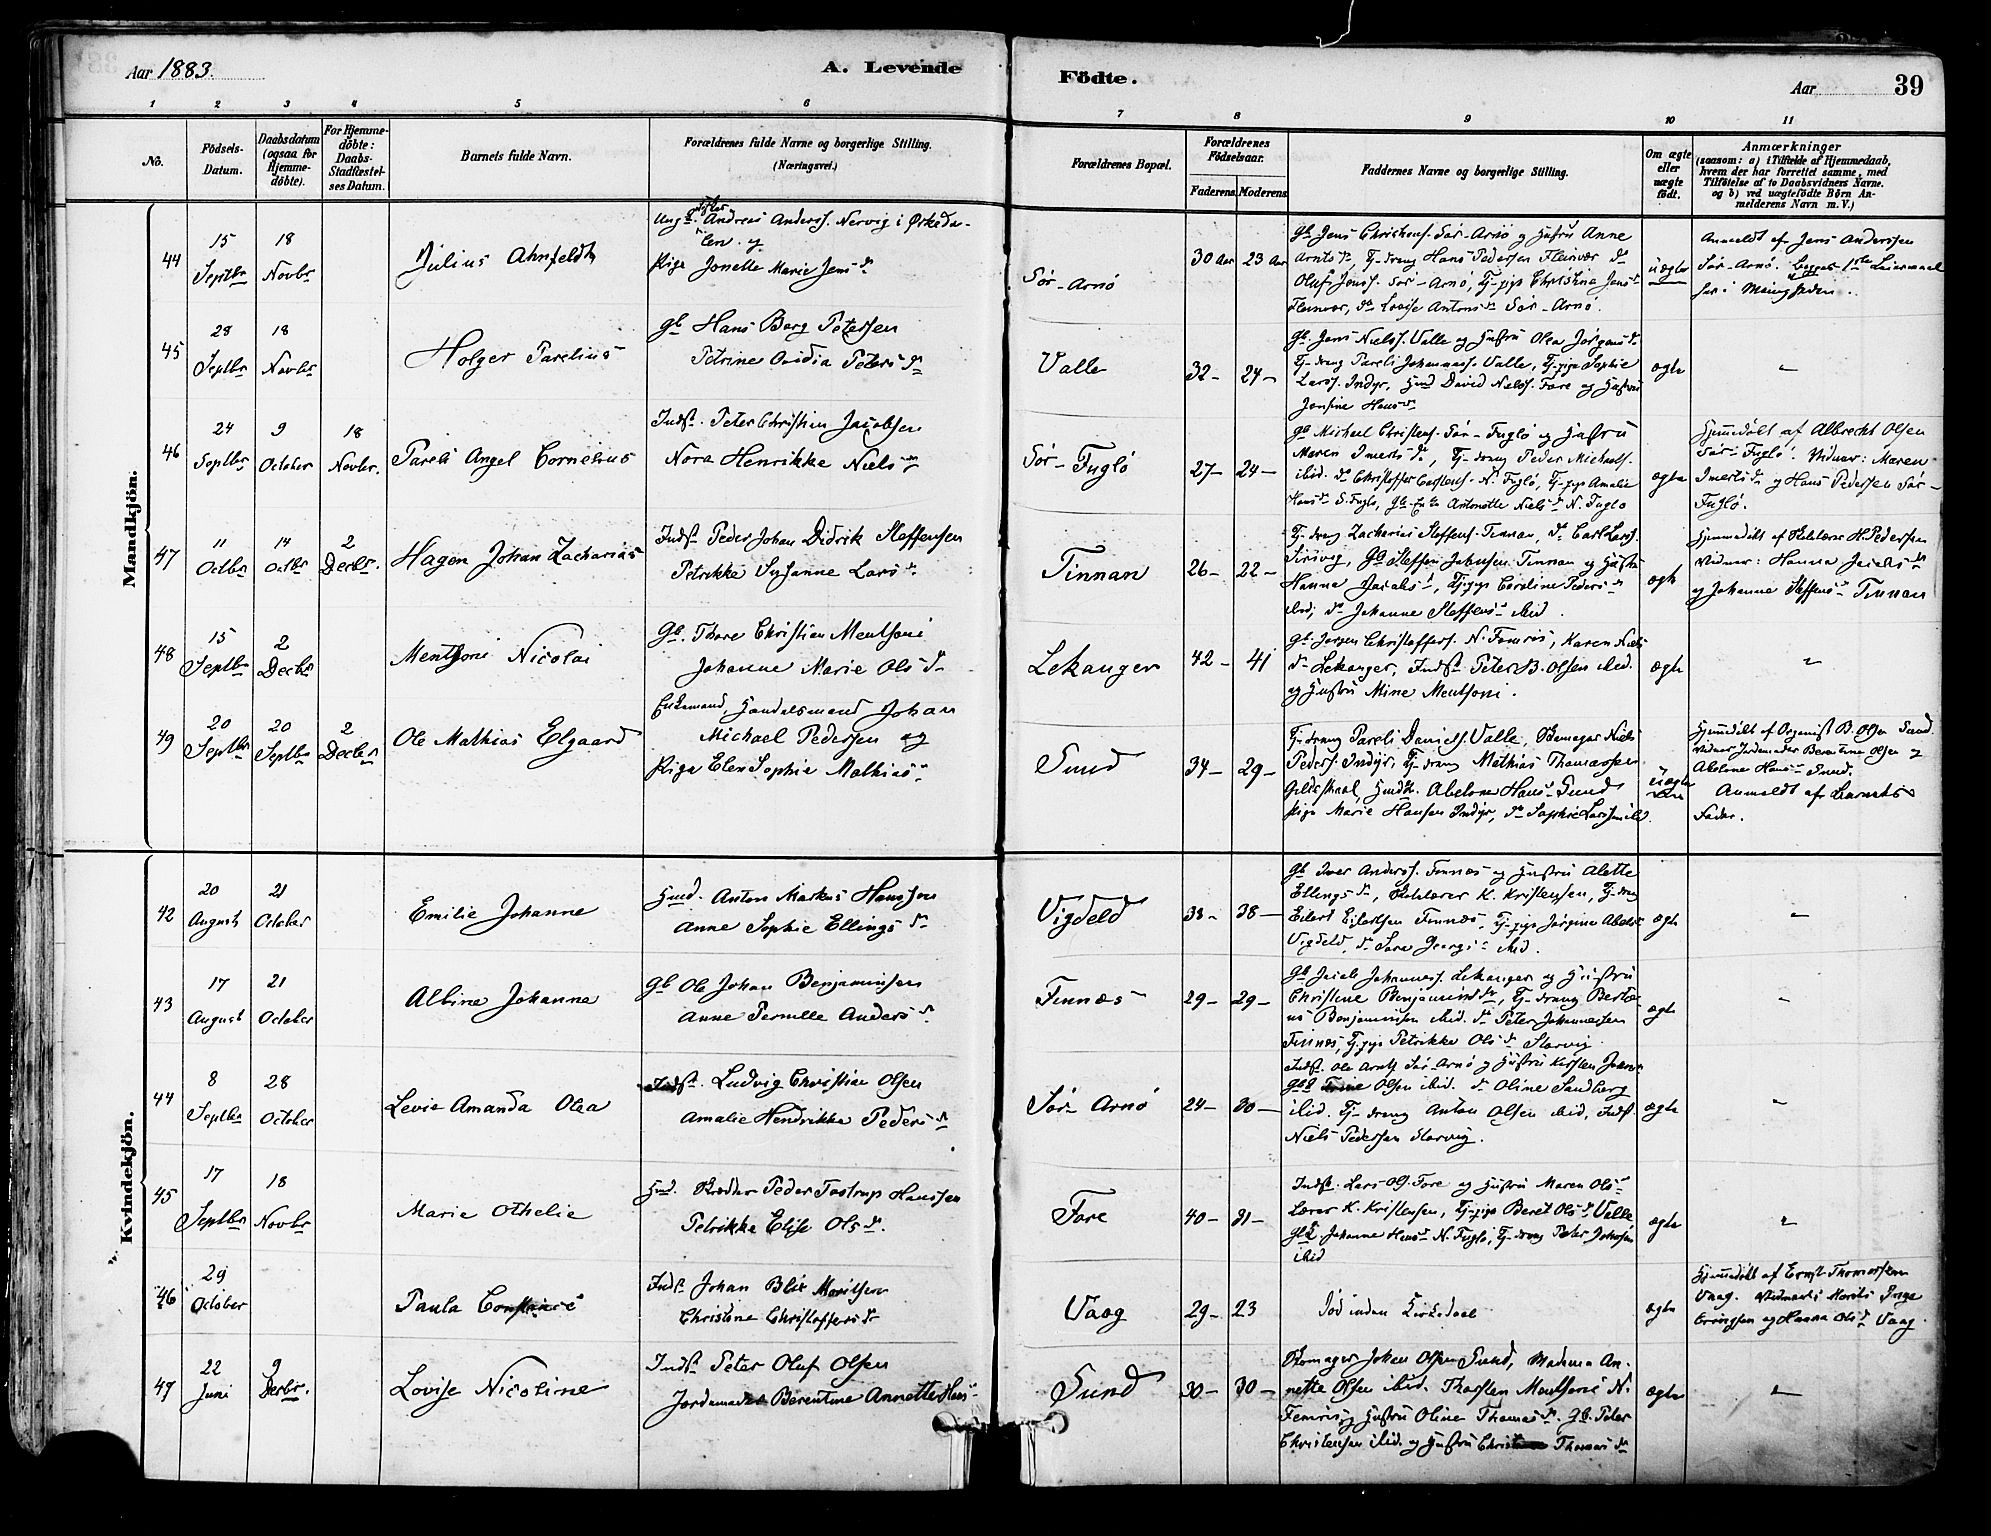 Aar 1883.
A. Levende
Födte.
Aar
39
1 2 3 4 5 6 7 8 9 10 11
No.
Födsels-
Datum.
Daabsdatum
(ogsaa for
Hjemme-
döbte).
For Hjemme-
döbte:
Daabs-
Stadfæstel-
ses Datum.
Barnets fulde Navn.
Forældrenes fulde Navne og borgerlige Stilling.
(Næringsvei.)
Forældrenes Bopæl.
Forældrenes
Födselsaar.
Faderens.
Moderens.
Faddernes Navne og borgerlige Stilling.
Om ægte
eller
uægte
födt.
Anmærkninger
(saasom: a) i Tilfælde af Hjemmedaab,
hvem der har forrettet samme, med
Tilföielse af to Daabsvidners Navne.
og b) ved uægtefödte Börn An-
melderens Navn m. V.)
Mandkjön.
44
15
Septbr
18
Novbr
Julius Ahnfeldt
Andreas Anderss. Nervig i Ørkeda-
len og
Pige Jonette Marie Jens dr
Sør-Arnø
30 Aar
23 Aar
Gb Jens Christens. Sør-Arnø og Hustru Anne
Arnts dr, Tj-dreng Hans Pedersen Fleinvær do
Oluf Jenss. Sør-Arnø, Tj-pige Christina Jens dr
Fleinvær, do Lovise Antons dr Sør-Arnø.
uægte
Anmeldt af Jens Anderssen
Sør-Arnø. Begges 1ste Leiermaal
her i Menigheden.
45
28
Septbr
18
Novbr
Holger Parelius
Gb Hans Borg Petersen
Petrine Ovidia Peters dr
Valle
32-
24-
Gb Jens Nielss. Valle og Hustru Olea Jørgens dr
Tj-dreng Pareli Johanness. Valle, Tj-pige Sophie
Larss. Indyr, Hmd David Nielss. Fore og Hustru
Jensine Hans dr
ægte
"
46
24
Septbr
9
October
18
Novbr.
Pareli Angel Cornelius
Indst. Peter Christian Jacobsen
Nora Henrikke Niels dr
Sør-Fuglø
27-
24-
Gb Michael Christens. Sør-Fuglø og Hustru
Maren Imerts dr, Tj-dreng Peder Michaels.
ibid. do Christoffer Carstens. N. Fuglø, Tj-pige Amalie
Hans dr S. Fuglø, Gb-Enke Antonette Niels dr N. Fuglø
ægte
Hjemmedøbt af Albrecht Olsen
Sør-Fuglø. Vidner: Maren
Imerts dr og Hans Pedersen Sør-
Fuglø.
47
11
Octbr
14
Octbr
2
Decbr.
Hagen Johan Zacharias
Indst Peder Johan Didrik Steffensen
Petrikke Susanne Lars dr
Finnan
26-
22-
Tj-dreng Zacharias Steffens. Finnan, do Carl Larss.
Gb Steffen Johnsen Finnan og Hustru
Hanna Jacobs dr, Tj-pige Caroline Peders dr
ibid, do Johanne Steffens dr ibid.
ægte
Hjemmedøbt af Skolelærer H. Pedersen
Vidner: Hanna Jacobs dr
og Johanne Steffens dr Finnan
48
15
Septbr
2
Decbr
Mentzoni Nicolai
Gb. Thore Christian Mentsoni
Johanne Marie Ols dr
Lekanger
42-
41
Gb. Jørgen Christoffers. N. Femris, Karen Niels
dr Lekanger, Indst Peter B. Olsen ibid.
og Hustru Mine Mentsoni.
ægte
"
49
20
Septbr
20
Septbr
2
Decbr
Ole Mathias Elgaard
Enkemand, Handelsmand Johan
Michael Pedersen og
Pige Elen Sophie Mathias dr
Sund
34-
29-
Tj-dreng Pareli Daniels. Valle, Skomager Niels
Peders. Indyr, Tj-dreng Mathias Thomassen
Gildeskaal, Abelone Hans dr Sund
Pige Marie Hansen Indyr, do Sophie Larssen ibid.
uægte
Hjemmedøbt af Organist B. Olsen Sund.
Vidner Jordemoder Berentine Olsen og
Abelone Hans dr Sund.
Anmeldt af Barnets
Fader.
Kvindekjön.
42
20
August
21
October
Emilie Johanne
Hmd. Anton Markus Hanssen
Anne Sophie Ellings dr
Vigdeld
38-
38-
Gb Iver Anderss. Finnæs og Hustru Alette
Ellings dr, Skolelærer K. Kristensen, Tj-dreng
Eilert Eilertsen Finnæs, Tj-pige Jørgine Abels dr
Vigdeld, do Sara Georgs dr ibid.
ægte
"
43
17
August
21
October
Albine Johanna
Gb Ole Johan Benjaminsen
Anne Pernille Anders dr
Finnæs
29-
29-
Gb Jacob Johanness. Lekanger og Hustru
Christene Benjamins dr, Tj-dreng Bertæ-
us Benjaminsen ibid. do Peter Johannessen
Finnæs, Tj-pige Petrikke Ols dr Storvig
ægte
"
44
8
Septbr
28
October
Levie Amanda Olea
Indst. Ludvig Christian Olsen
Amalie Hendrikke Peders dr
Sør-Arnø
24-
30-
Indst. Ole Arnts. Sør-Arnø og Hustru Kirsten Jens dr
Olsen ibid. do Oline Sandberg
ibid. Tj-dreng Anton Olsen ibid, Indst.
Niels Pedersen Storvig.
ægte
"
45
17
Septbr
18
Novbr
Marie Othelie
Hmd. Kræmer Peder Tostrup Hanssen
Petrikke Elise Ols dr
Fore
40-
31-
Indst. Lars Ols. Fore og Hustru Maren Ols dr
Lærer K. Kristensen, Tj-pige Beret Ols dr Valle
Johanne Hans dr N. Fuglø, Tj-dreng Peter Johnsen
ibid
ægte
"
46
29
October
Paula Constance
Indst Johan Blix Moritsen
Christine Christoffers dr
Vaag
29-
23
Død inden Kirkedaab
ægte
Hjemmedøbt af Ernst Thomassen
Vaag. Vidner: Morits Inge-
brigtsen og Hanna Ols dr Vaag.
47
22
Juni
9
Decbr.
Lovise Nicoline
Indst Peter Oluf Olsen
Jordemoder Berentine Annette Hans dr
Sund
30-
30-
Skomager Johan Olsen Sund, Madama An-
nette Olsen ibid. Thorsten Mentsoni N.
Femris og Hustru Oline Thomas dr. Gb. Peter
Christensen ibid. og Hustru Thomas dr
ægte
"